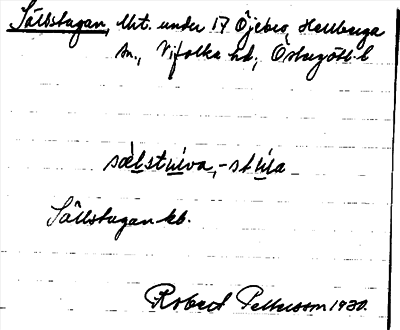 Sällstugan, lht. under 17 Öjebro, Hellberga
sn., Vifolka hd, Östergötl. l
sælstuva, -stúla
Sällstugan kb.
Robert Pettersson 1930.